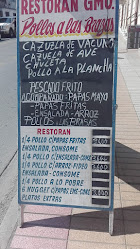 RESTORAN GMO.
Pollos a las Brazas
CAZUELA DE VACUNO
CAZUELA DE AVE
CHULETA
POLLO A LA PLANCHA
PESCADO FRITO
ACOMPAÑADO-PAPAS MAYO
-PAPAS FRITAS
-ENSALADA-ARROZ
POLLOS
RESTORAN
1/4 POLLO C/PAPAS FRITAS
ENSALADA, CONSOME
1/4 POLLO C/ENSALADA-CONSOME
1/4 POLLO C/ARROZ-
ENSALADA-CONSOME
1/4 POLLO A LO POBRE
6 NUGGET C/PAPAS
PLATOS EXTRAS